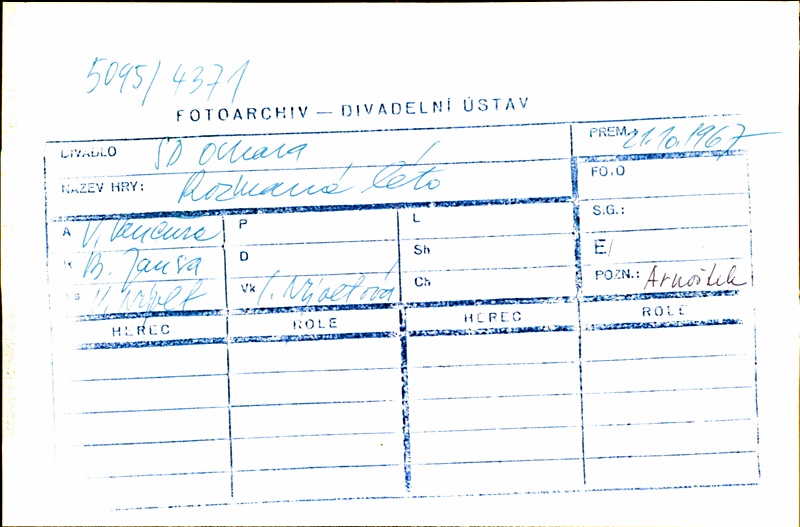 5095/4371
FOTOARCHIV — DIVADELNÍ ÚSTAV
DIVADLO SD Ostrava
PREM. 21.10.1967
NÁZEV HRY: Rozmarné léto
FOTO
A V. Vančura P L S.G.:
B. Jansa D Sh E/
Vk I. Nývltová Ch POZN.: Arnoštek
HEREC ROLE HEREC ROLE